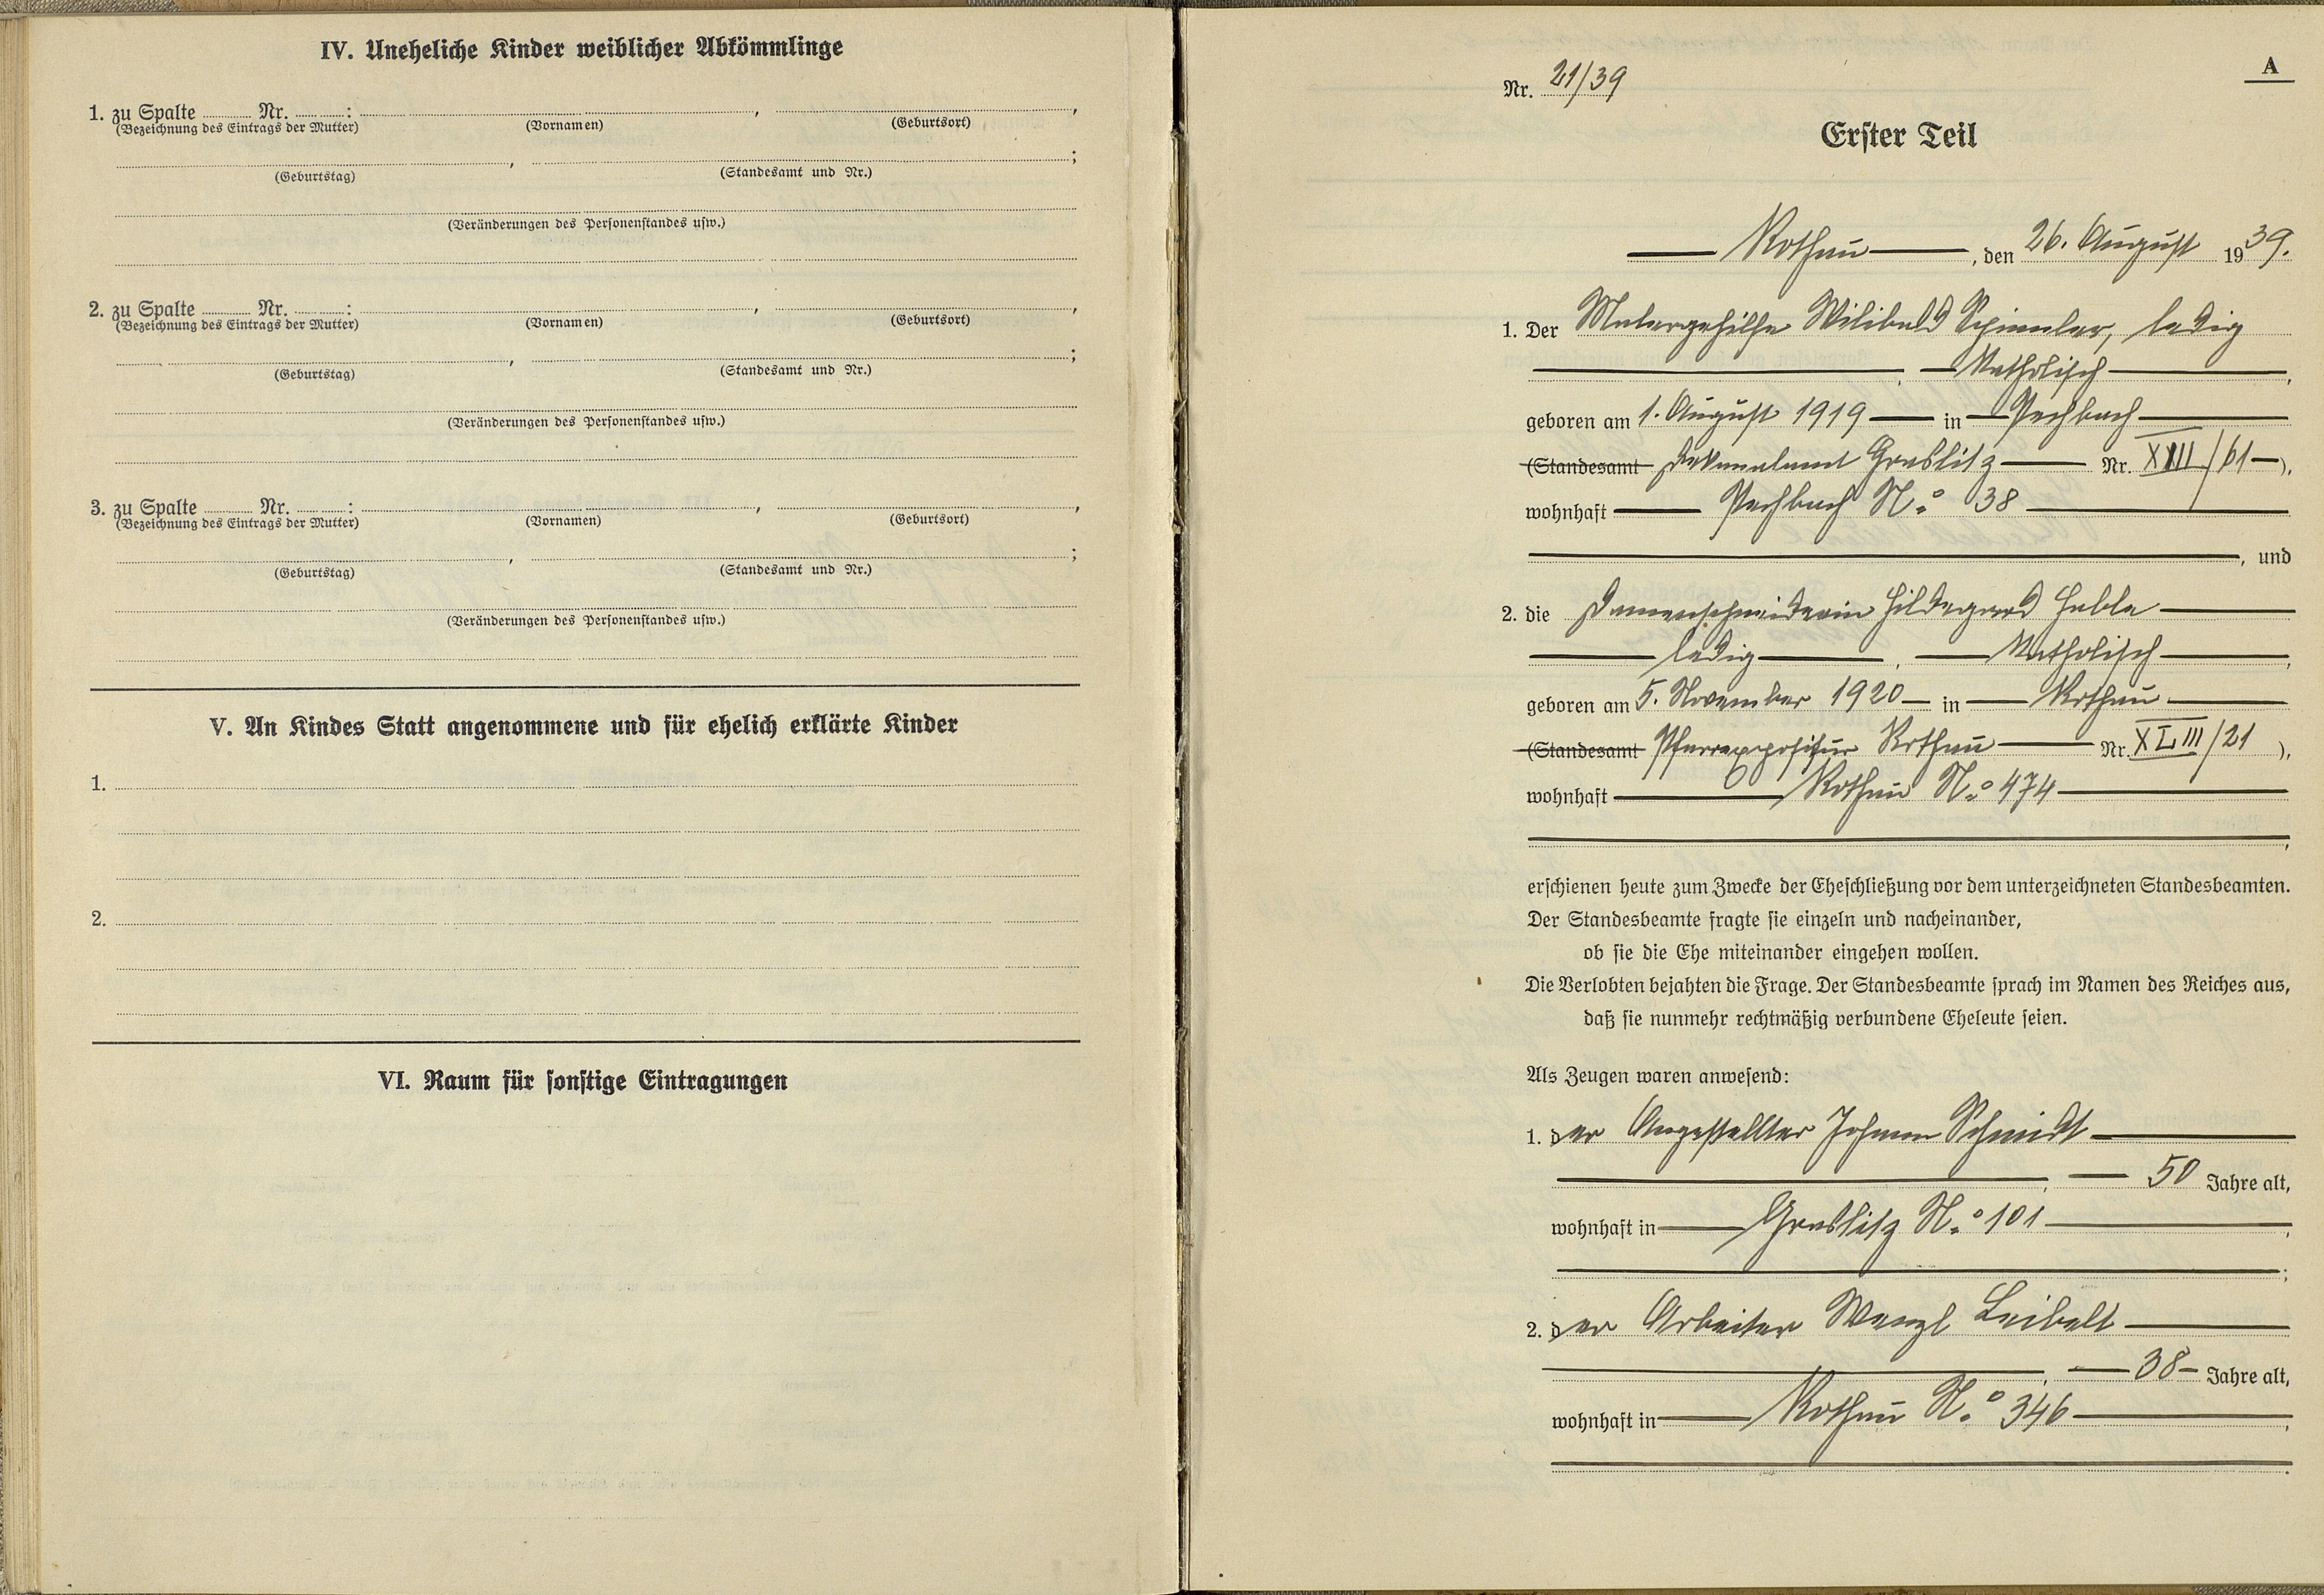 IV. Uneheliche Kinder weiblicher Abkömmlinge
1. zu Spalte Nr. : , ,
(Bezeichnung des Eintrags der Mutter) (Vornamen) (Geburtsort)
, ;
(Geburtstag) (Standesamt und Nr.)
(Veränderungen des Personenstandes usw.)
2. zu Spalte Nr. : , ,
(Bezeichnung des Eintrags der Mutter) (Vornamen) (Geburtsort)
, ;
(Geburtstag) (Standesamt und Nr.)
(Veränderungen des Personenstandes usw.)
3. zu Spalte Nr. : , ,
(Bezeichnung des Eintrags der Mutter) (Vornamen) (Geburtsort)
, ;
(Geburtstag) (Standesamt und Nr.)
(Veränderungen des Personenstandes usw.)
V. An Kindes Statt angenommene und für ehelich erklärte Kinder
1.
2.
VI. Raum für sonstige Eintragungen
A
Nr. 21/39
Erster Teil
Rothau, den 26. August 1939.
1. Der Malergehilfe Wilibald, ledig
, Katholisch,
geboren am 1. August 1919 in Pechbach
(Standesamt Dekanalamt Graslitz Nr. XVIII/61),
wohnhaft Pechbach N.o 38
, und
2. die Damenschneiderin Hildegard
ledig, Katholisch,
geboren am 5. November 1920 in Rothau
(Standesamt Pfarrexpositur Rothau Nr. XLIII/21),
wohnhaft Rothau N.o 474
,
erschienen heute zum Zwecke der Eheschließung vor dem unterzeichneten Standesbeamten.
Der Standesbeamte fragte sie einzeln und nacheinander,
ob sie die Ehe miteinander eingehen wollen.
Die Verlobten bejahten die Frage. Der Standesbeamte sprach im Namen des Reiches aus,
daß sie nunmehr rechtmäßig verbundene Eheleute seien.
Als Zeugen waren anwesend:
1. der Angestellter Johann Schmidt
, 50 Jahre alt,
wohnhaft in Graslitz N.o 101
;
2. der Arbeiter Wenzl Leibelt
, 38 Jahre alt,
wohnhaft in Rothau N.o 346
.